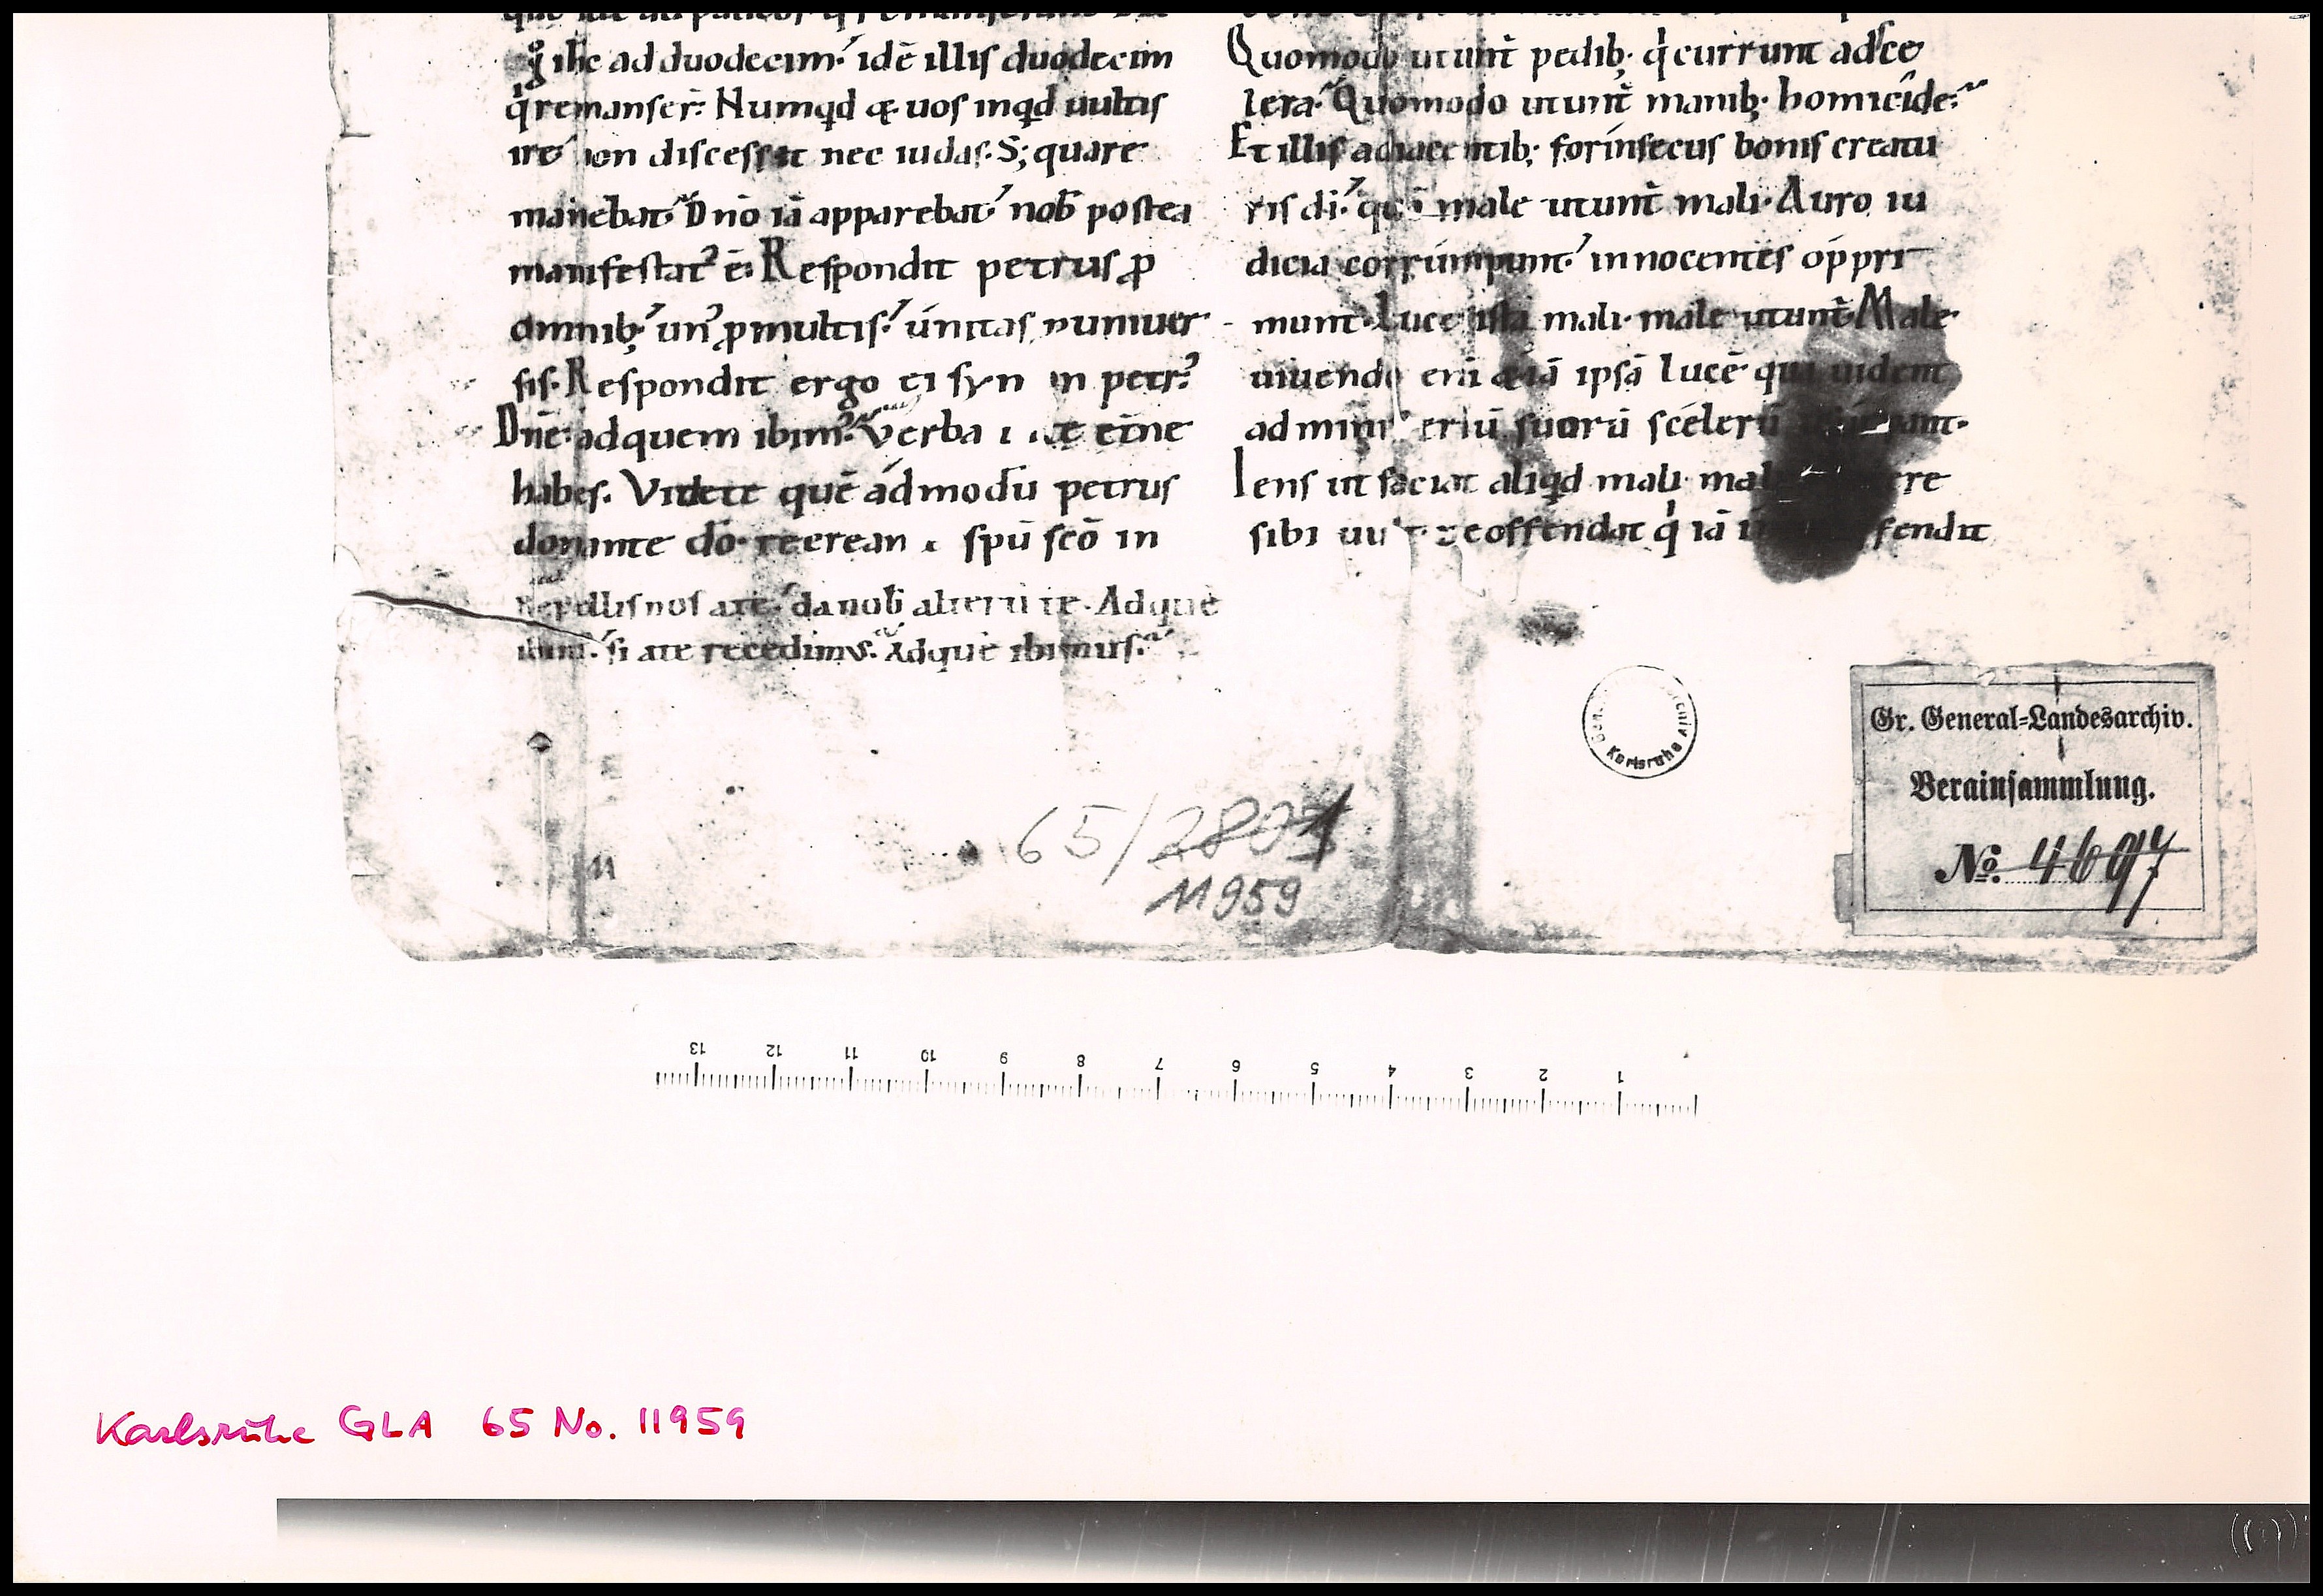 g̊ ihc ad duodecim: idē illis duodecim
q̇ remanser̄: Numqd & uos inqd uultis
ire non discessit nec iudas. S; quare
manebat: Dn̄o iā apparebat: nob̄ postea
manifestatꝰ ē. Respondit petrus ꝓ
omnib; unꝰ ꝓ multis: únitas ꝓ uniuer
sis. Respondit ergo ei symon petrꝰ
Dn̄e ad quem ibimꝰ: Verba uite et̄ne
habes. Videte quē ádmodū petrus
donante dō recrean spū scō in
Repellis nos a te: da nob̄ alterū te. Ad quē
ibimꝰ: si a te recedimꝰ. Ad quē ibimus:
Quomodo utunt̄ pedib; q̇ currunt ad sce
lera: Quomodo utunt̄ manib; homicíde:
Et illis adiacentib; forínsecus bonis creatu
ris dī: quā male utunt̄ mali. Auro iu
dicia corrúmpunt: innocentes óppri
munt. Luce ista mali male utunt̄. Male
uiuendo eni &iā ipsā lucē qua uident
ad ministeriū suorū scélerū
lens ut faciat aliqd mali mal re
sibi uult ne offendat q̇ iā fendit
65/2801
11959
11
Gen. Karlsruhe Archiv
Gr. General-Landesarchiv.
Berainsammlung.
No. 4697
13 12 11 10 9 8 7 6 5 4 3 2 1
Karlsruhe GLA 65 No. 11959